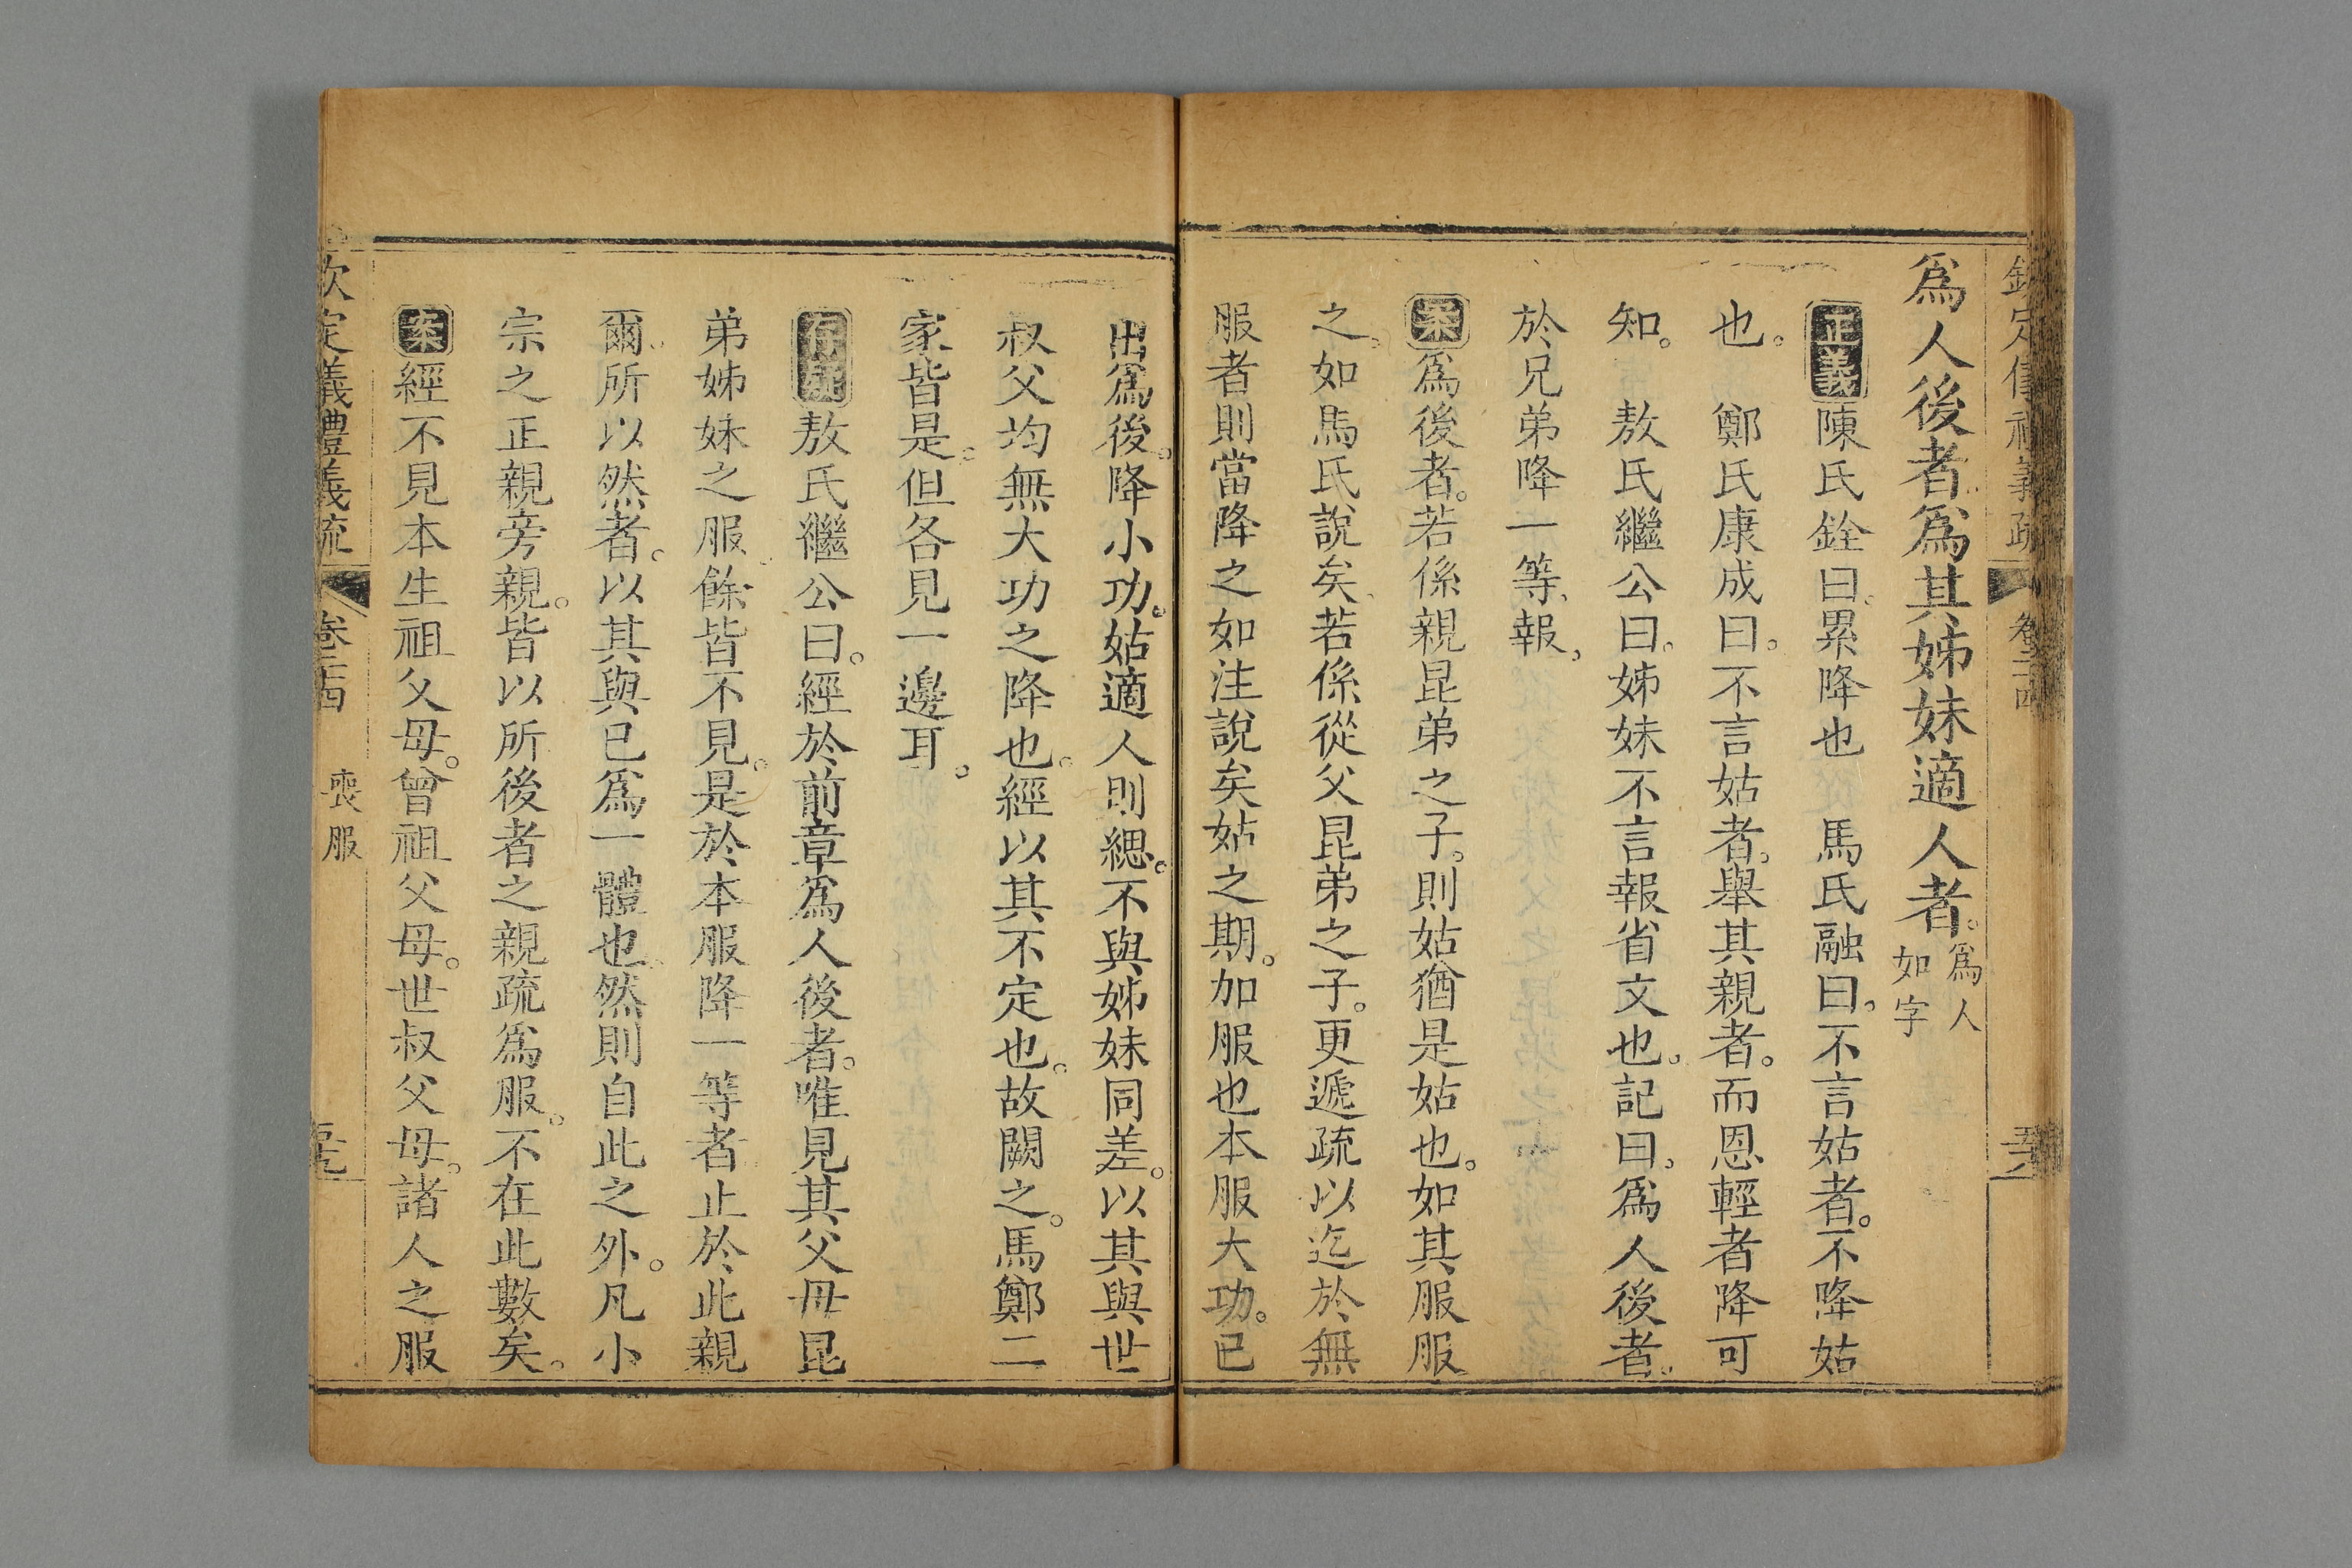 為人後者為其姊妹適人者。為人
如字
正義陳氏銓曰累降也 馬氏融曰不言姑者。不降姑
也。 鄭氏康成曰不言姑者。舉其親者。而恩輕者降可
知。 敖氏繼公曰。姊妹不言報省文也。記曰。為人後者。
於兄弟降一等報。
案為後者。若係親昆弟之子。則姑猶是姑也。如其服服
之。如馬氏說矣。若係從父昆弟之子。更遞疏以迄於無
服者則當降之如注說矣姑之期。加服也本服大功。已
出為後。降小功。姑適人則緦。不與姊妹同差。以其與世
叔父均無大功之降也。經以其不定也。故闕之。馬鄭二
家皆是。但各見一邊耳。
存疑敖氏繼公曰。經於前章為人後者。唯見其父母昆
弟姊妹之服。餘皆不見。是於本服降一等者止於此親
爾。所以然者。以其與已為一體也。然則自此之外。凡小
宗之正親旁親。皆以所後者之親疏為服。不在此數矣。
案經不見本生祖父母。曾祖父母。世叔父母。諸人之服
欽定儀禮義疏 卷二十四 喪服